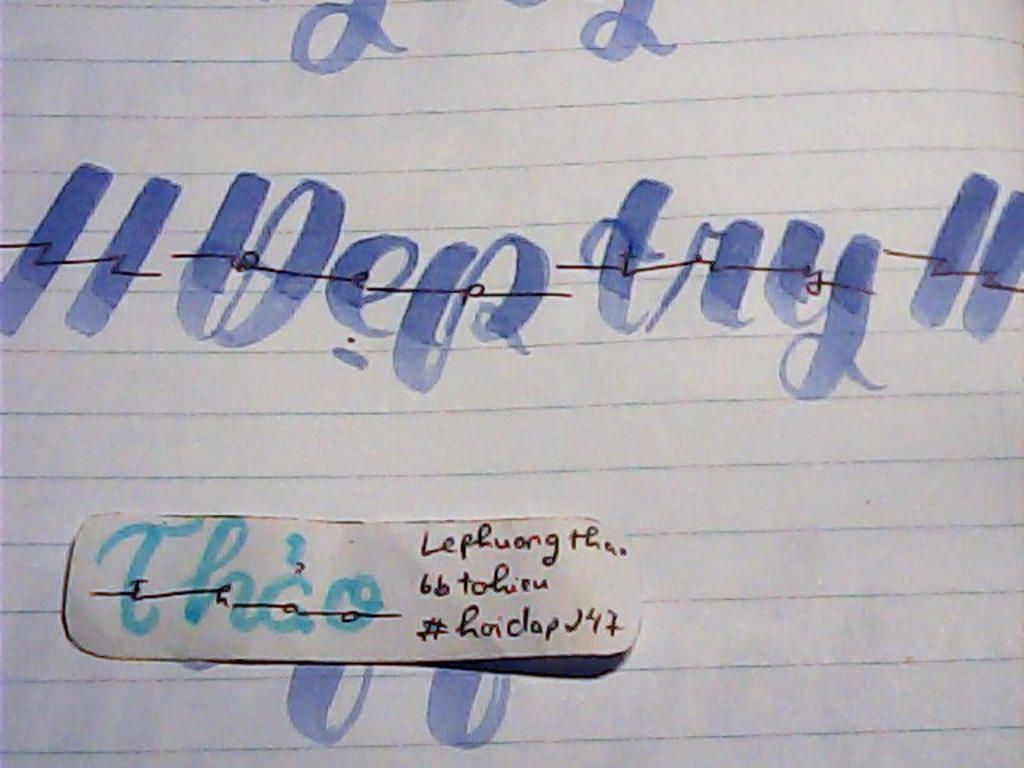 "Dẹp try"
Thảo
Lephuongthao
6b tohieu
#hoidap247